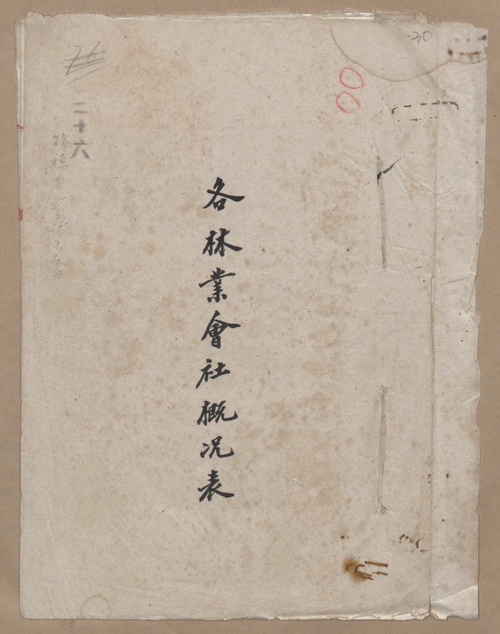 各林業會社概況表
二十六
26